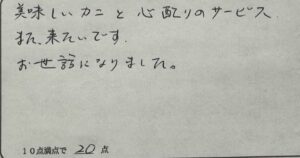 美味しいカニと心配りのサービス
また、来たいです.
お世話になりました。
10点満点で 20 点